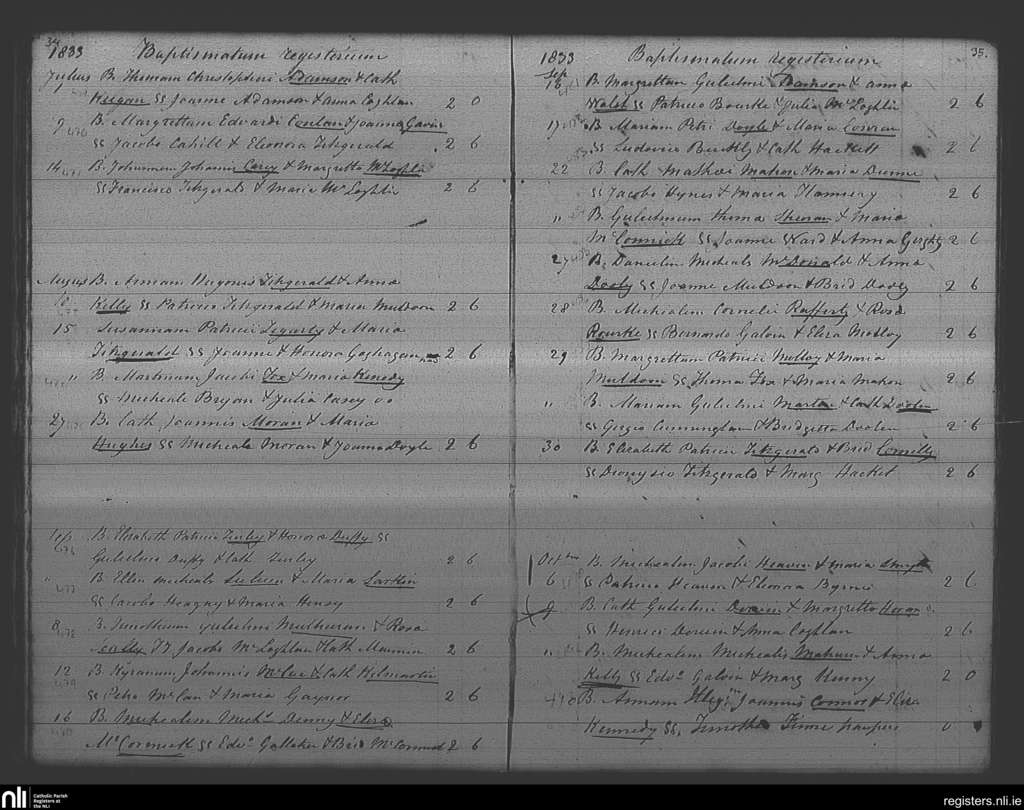 34
1833 Baptismatum registerium
Julius B. Thomam Christopheri Adamson & Cath
Keegan SS Joanne Adamson & Anna Coghlan 2 0
9 B. Margrettam Edvardi Conlan & Joanna Gavin
SS Jacobo Cahill & Eleonora Fitzgerald 2 6
14 B. Johannem Johannis Carey & Margretta McLoghlin
SS Francisco Fitzgerald & Maria McLoghlin 2 6
B. Annam Hugonis Fitzgerald & Anna
Kelly SS Patricio Fitzgerald & Maria Muldoon 2 6
15 Susannam Patricii Segerty & Maria
Fitzgerald SS Joanne & Honora Goghagan 2 6
" B. Martinum Jacobi Fox & Maria Kenedy
SS Micheale Bryan & Julia Casey 00
27 B. Cath Joannis Moran & Maria
Hughes SS Micheale Moran & Joanna Doyle 2 6
Sep B. Elisabeth Patricii Finley & Honora Duffy SS
Gulielmo Duffy & Cath Finley 2 6
" B. Ellen Micheals & Maria Larkin
SS Jacobo Heagny & Maria Henry 2 6
8 B. Timotheum Gulielmi Mulhuran & Rosa
Scully Jacobo McLoghlan & Cath Mannin 2 6
12 B. Kyranum Johannis McCue & Cath Kilmartin
SS Petro McCan & Maria Gaynor 2 6
16 B. Michealem Michl Denny & Eliza
McCormick SS Edvo Gallaher & Brid McCormick 2 6
35.
1833 Baptismatum registerium
Sep
16 B. Margrettam Gulielmi Adamson & Anna
Walsh SS Patricio Bourke & Julia McLoghlin 2 6
17 B. Mariam Petri Doyle & Maria Conran
SS Ludovico Buckley & Cath Hackett 2 6
22 B. Cath Mathei Mahon & Maria Dunne
SS Jacobo Hynes & Maria Flannery 2 6
" B. Gulielmum Thoma Sheran & Maria
McCormick SS Joanne Ward & Anna Geighty 2 6
27 B. Danielem Micheals McDonald & Anna
Dooly SS Joanne Muldoon & Brid Dooly 2 6
28 B. Michealem Cornelii Rafferty & Rosa
Rourke SS Bernardo Galvin & Eliza Molloy 2 6
29 B. Margrettam Patricii Molloy & Maria
Muldoon SS Thoma Fox & Maria Mahon 2 6
" B. Mariam Gulielmi Martin & Cath Doolen
SS Georgio Cunningham & Bridgetta Doolen 2 6
30 B. Elisabeth Patricii Fitzgerald & Brid Connelly
SS Dionysio Fitzgerald & Marg Hacket 2 6
Octber B. Michealem Jacobi Heaven & Maria Smyth
6 SS Patricio Heaven & Elenora Byrne 2 6
9 B. Cath Gulielmi Doreen & Margretta Horan
SS Henrico Doreen & Anna Coghlan 2 6
" B. Michealem Michealis Mahon & Anna
Kelly SS Edvo Galvin & Marg Kenny 2 0
B. Annam Joannis Connor & Eliza
Kennedy SS, Timotheo Finne paupers 0
nli Catholic Parish Registers at the NLI
registers.nli.ie